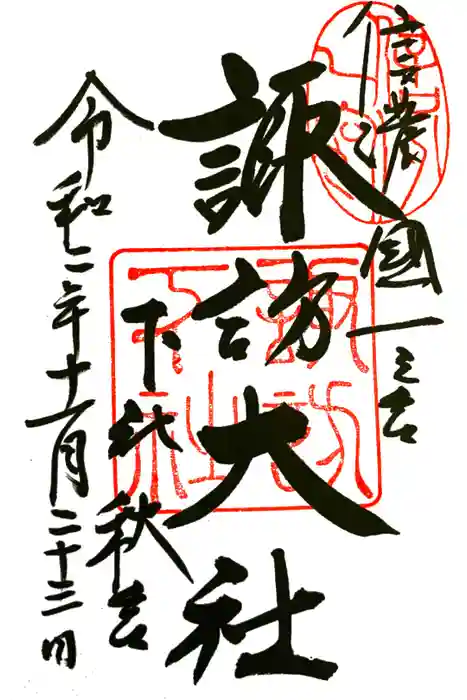 信濃國一之宮
諏訪大社
下社秋宮
令和二年十一月二十三日